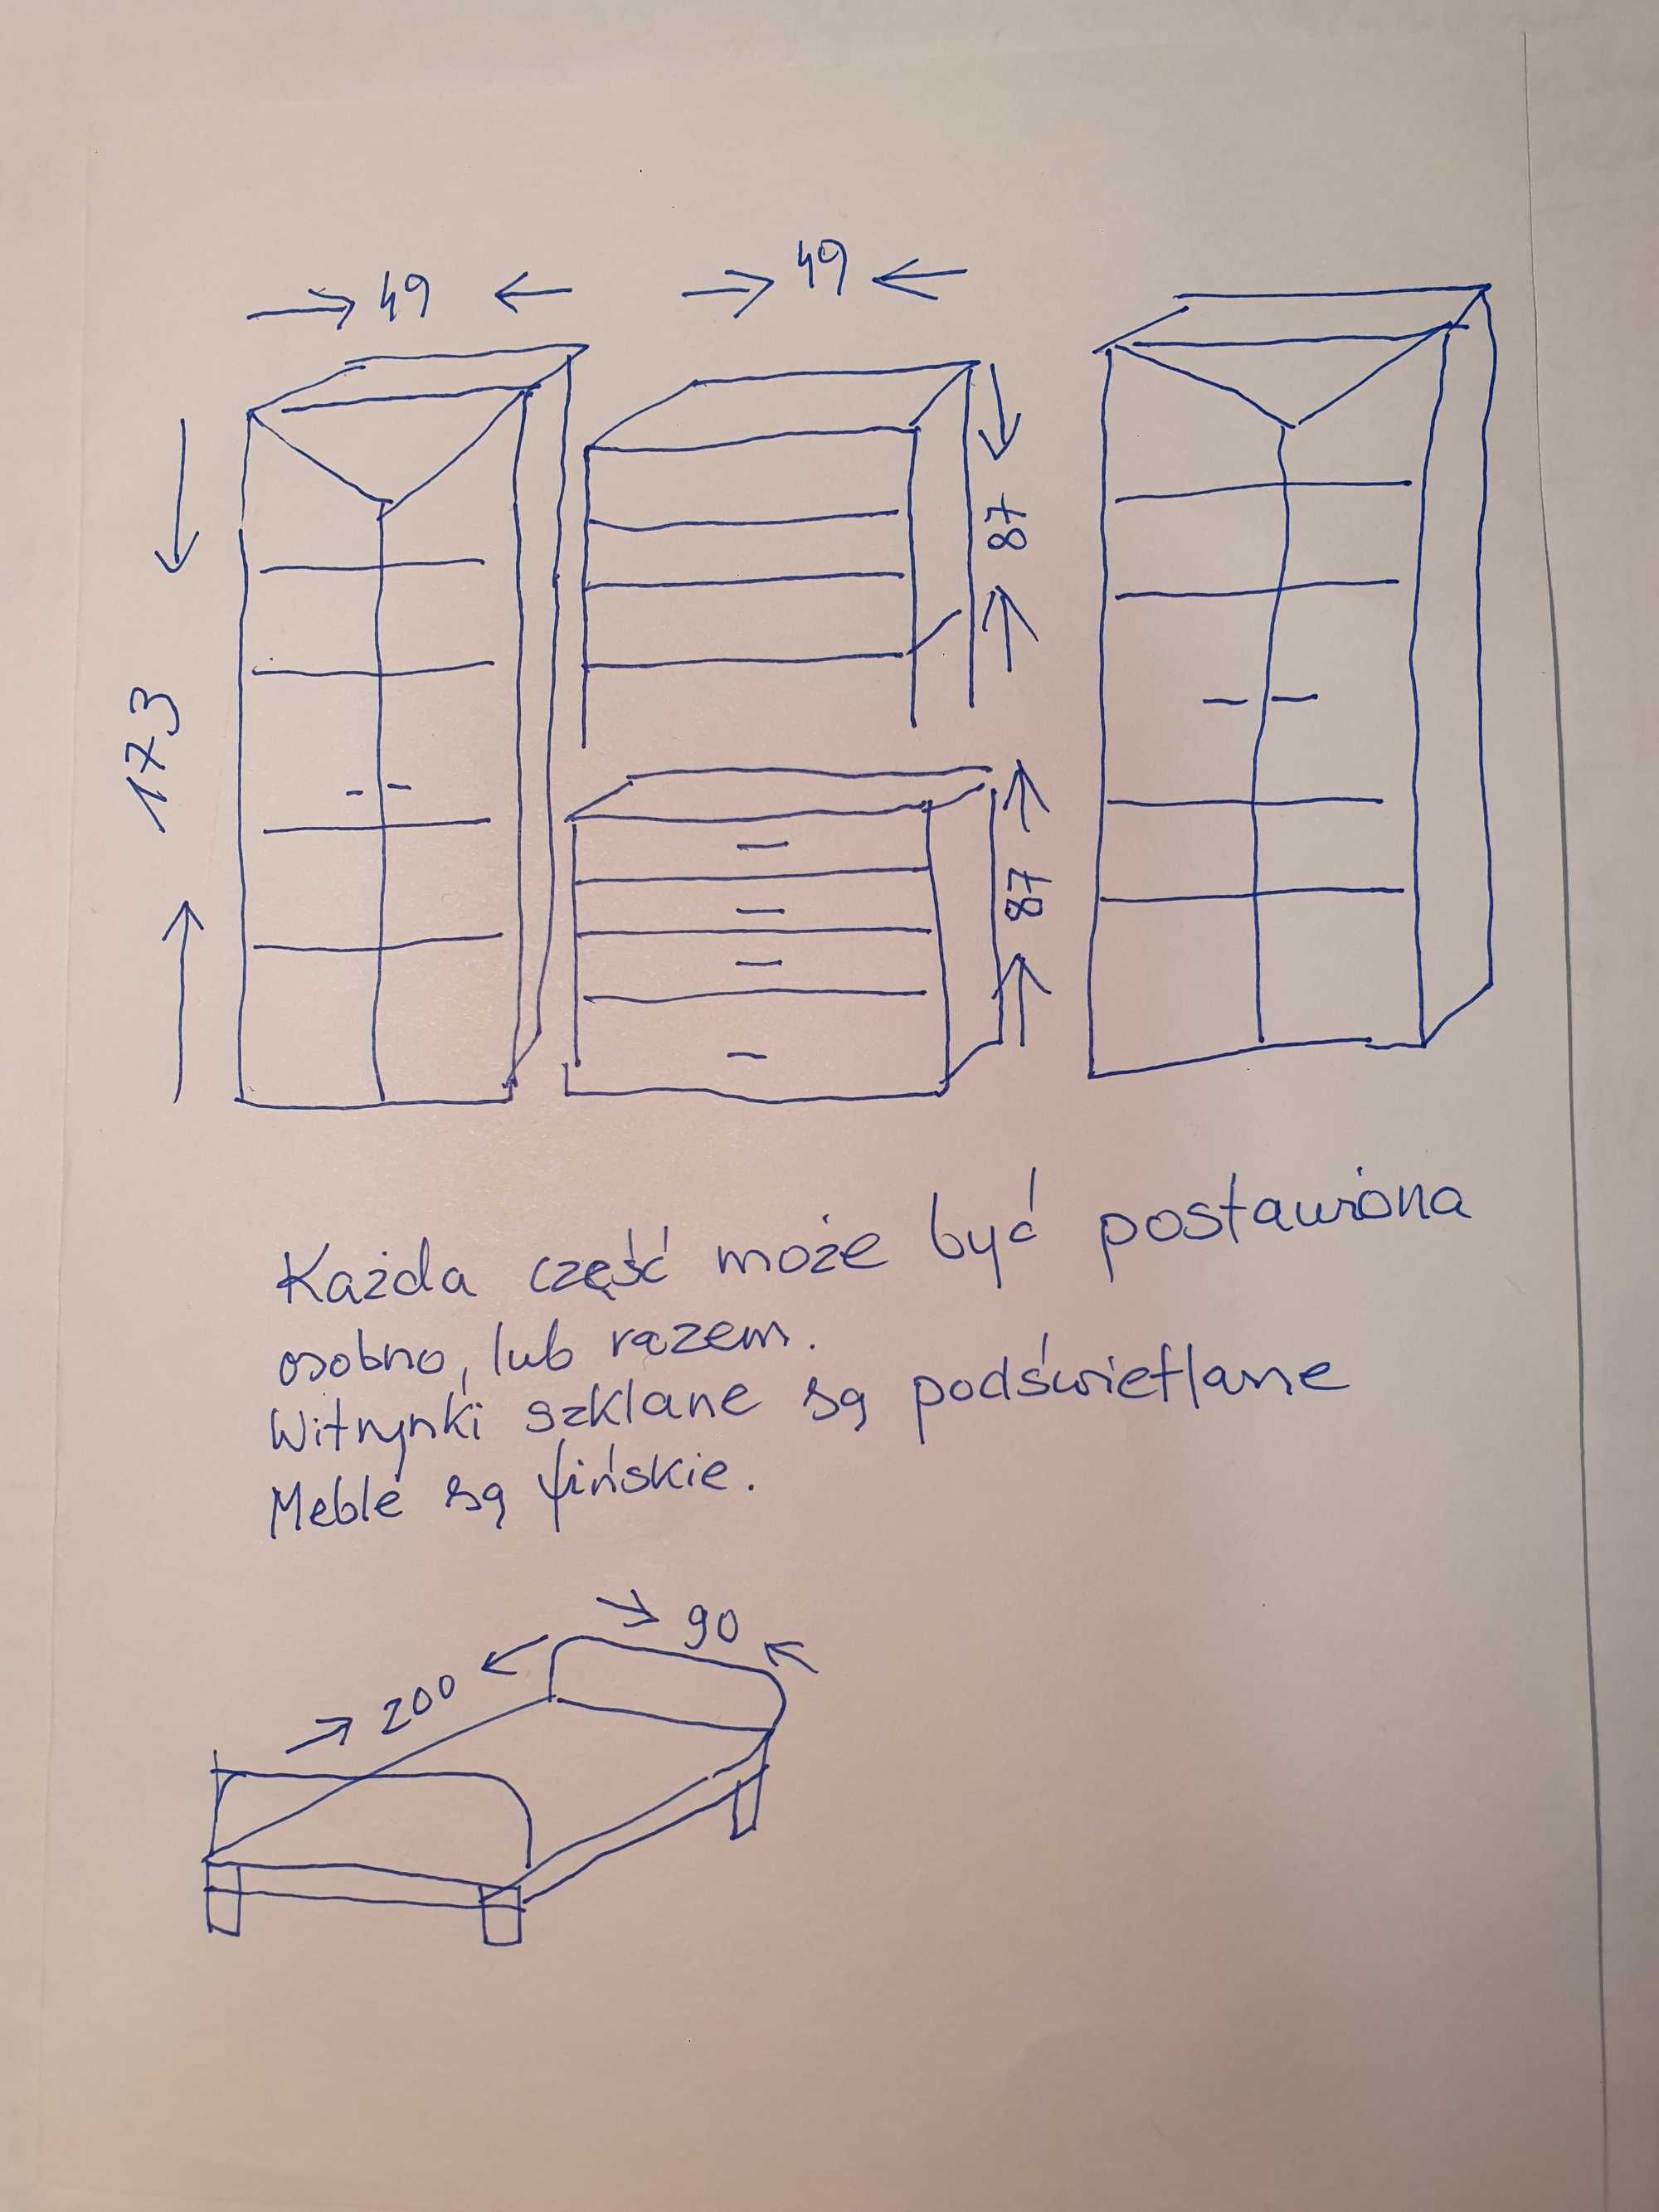 49
49
173
87
87
Każda część może być postawiona
osobno, lub razem.
Witrynki szklane są podświetlane
Meble są fińskie.
90
200